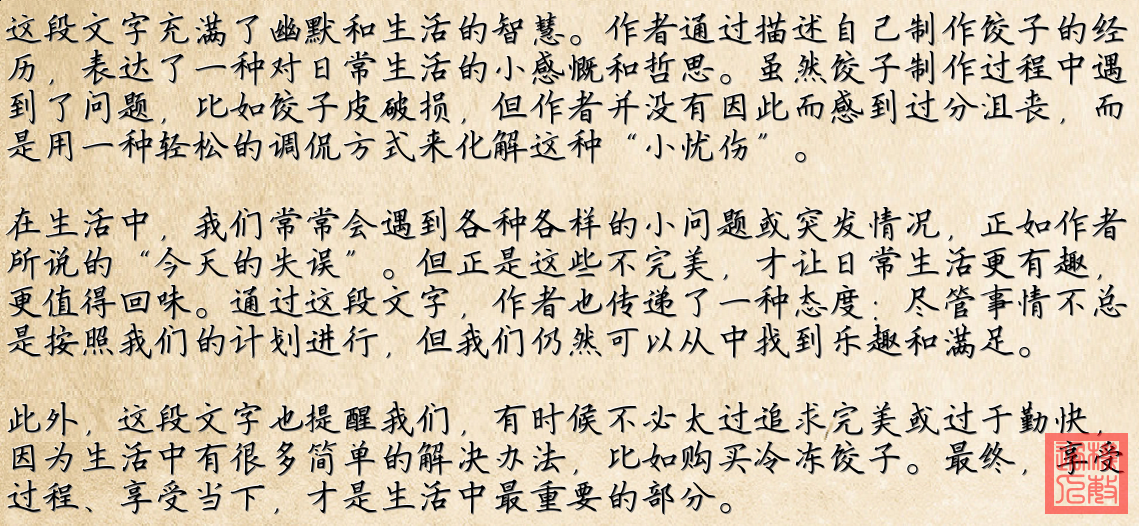 这段文字充满了幽默和生活的智慧。作者通过描述自己制作饺子的经
历，表达了一种对日常生活的小感慨和哲思。虽然饺子制作过程中遇
到了问题，比如饺子皮破损，但作者并没有因此而感到过分沮丧，而
是用一种轻松的调侃方式来化解这种“小忧伤”。
在生活中，我们常常会遇到各种各样的小问题或突发情况，正如作者
所说的“今天的失误”。但正是这些不完美，才让日常生活更有趣，
更值得回味。通过这段文字，作者也传递了一种态度：尽管事情不总
是按照我们的计划进行，但我们仍然可以从中找到乐趣和满足。
此外，这段文字也提醒我们，有时候不必太过追求完美或过于勤快，
因为生活中有很多简单的解决办法，比如购买冷冻饺子。最终，享受
过程、享受当下，才是生活中最重要的部分。